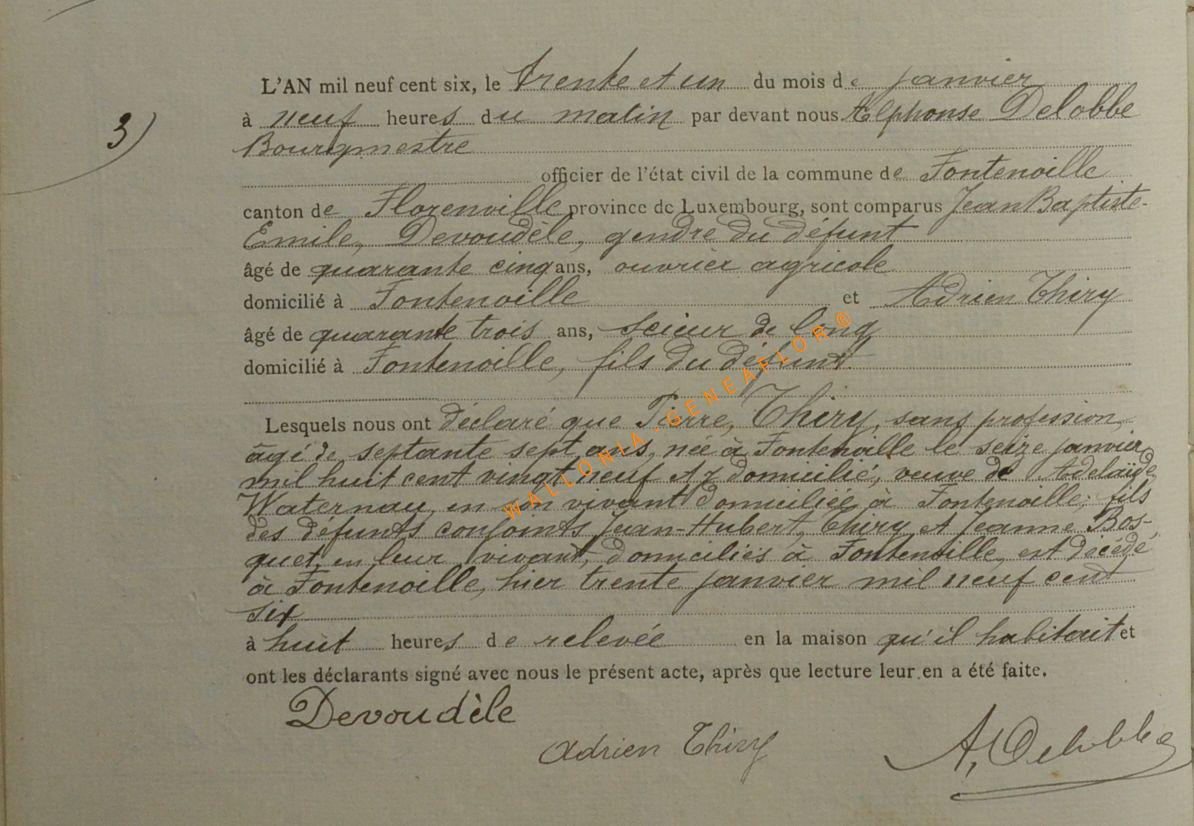 L'AN mil neuf cent six, le trente et un du mois de janvier
3) à neuf heures du matin par devant nous Alphonse Delobbe
Bourgmestre
officier de l'état civil de la commune de Fontenoille
canton de Florenville province de Luxembourg, sont comparus Jean Baptiste-
Emile, Devoudèle, gendre du défunt
âgé de quarante cinq ans, ouvrier agricole
domicilié à Fontenoille et Adrien Thiry
âgé de quarante trois ans, scieur de long
domicilié à Fontenoille, fils du défunt.
Lesquels nous ont déclaré que Pierre, Thiry, sans profession,
âgé de septante sept ans, née à Fontenoille le seize janvier
mil huit cent vingt neuf et y domicilié, veuve de Adelaïde
Waternau, en son vivant domiciliée à Fontenoille; fils
des défunts conjoints Jean-Hubert, Thiry et Jeanne Bos-
quet, en leur vivant, domiciliés à Fontenoille, est décédé
à Fontenoille, hier trente janvier mil neuf cent
six
à huit heures de relevée en la maison qu'il habitait et
ont les déclarants signé avec nous le présent acte, après que lecture leur en a été faite.
Devoudèle
Adrien Thiry
A. Delobbe
WALLONIA-GENEAFLOR®